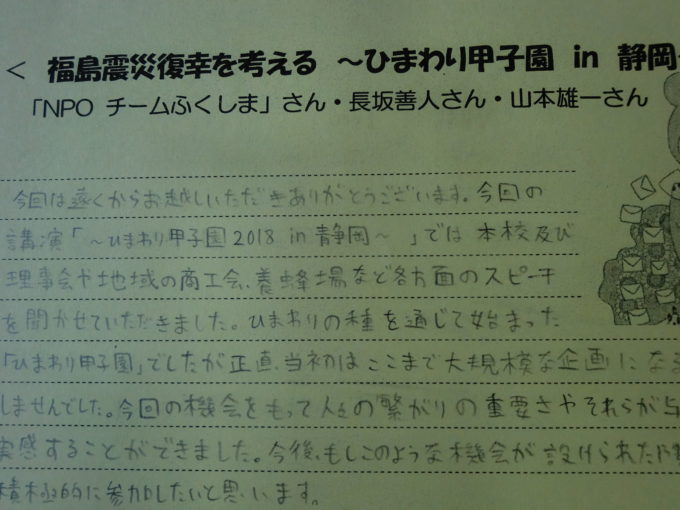 < 福島震災復幸を考える ～ひまわり甲子園 in 静岡
「NPO チームふくしま」さん・長坂善人さん・山本雄一さん
今回は遠くからお越しいただきありがとうございます。今回の
講演「～ひまわり甲子園2018 in 静岡～」では本校及び
理事会や地域の商工会、養蜂場など各方面のスピーチ
を聞かせていただきました。ひまわりの種を通じて始まった
「ひまわり甲子園」でしたが正直、当初はここまで大規模な企画にな
しませんでした。今回の機会をもって人との繋がりの重要さやそれらが与
実感することができました。今後、もしこのような機会が設けられた
積極的に参加したいと思います。